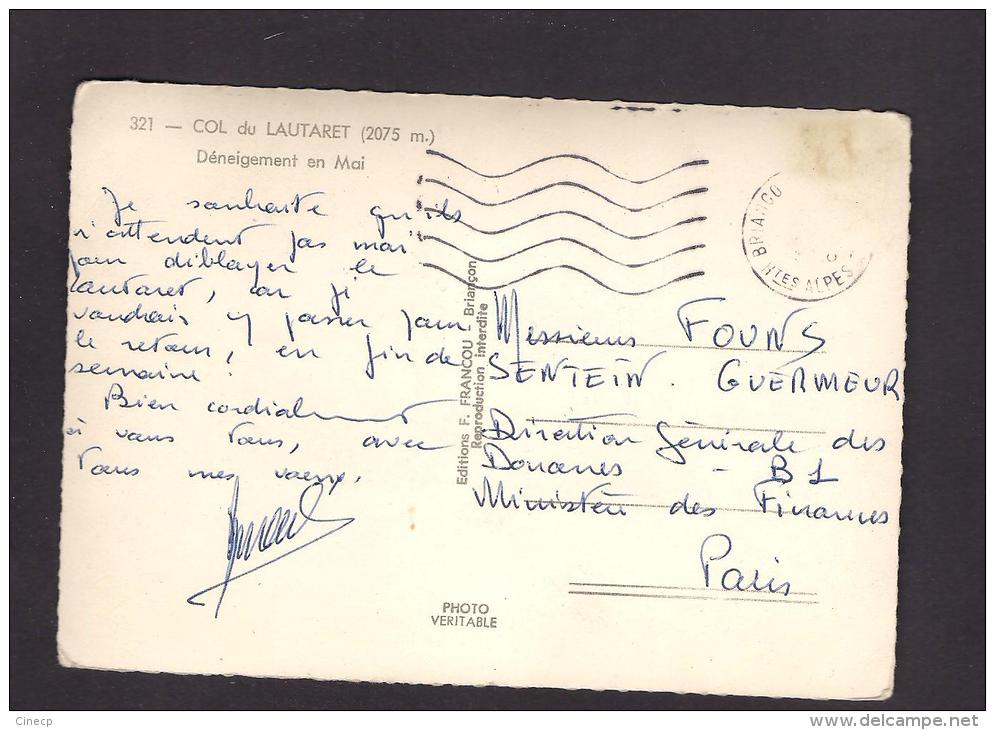 321 — COL du LAUTARET (2075 m.)
Déneigement en Mai
Je souhaite qu'ils
n'attendent pas mai
pour déblayer le
Lautaret, car j'
voudrais y passer pour
le retour, en fin de
semaine.
Bien cordialement
à vous tous, avec
tous mes vœux.
Editions F. FRANCOU - Briançon
Reproduction interdite
PHOTO
VERITABLE
BRIANCO
HTES ALPES
Messieurs FOUNS
SENTEIN. GUERMEUR
Direction Générale des
Douanes - B1
Ministère des Finances
Paris
Cinecp
www.delcampe.net